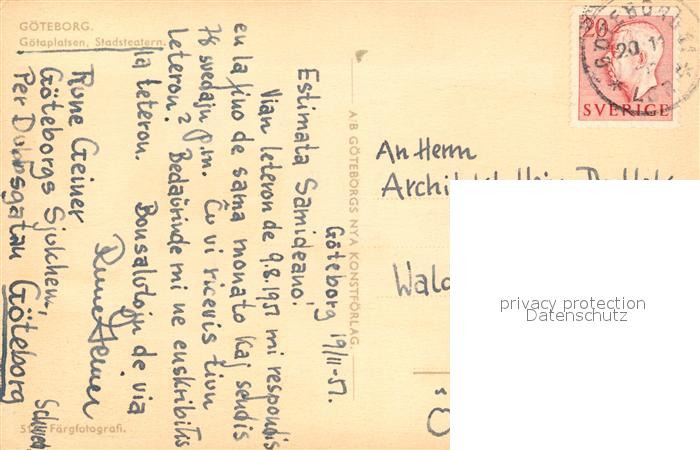 GÖTEBORG.
Götaplatsen, Stadsteatern.
Göteborg 19/11-51.
Estimata Samideano,
Vian leteron de 9.8.1951 mi respondis
en la fino de sama monato kaj sendis
78 svedajn p.m. Ĉu vi ricevis tiun
leteron? Bedaŭrinde mi ne enskribitis
la leteron. Bonsalutojn de via
Rune Geiner
Rune Geiner
Göteborgs Sjukhem,
Per Dubbsgatan Göteborg
A/B GÖTEBORGS NYA KONSTFÖRLAG.
Färgfotografi.
20
SVERIGE
An Herrn
privacy protection
Datenschutz